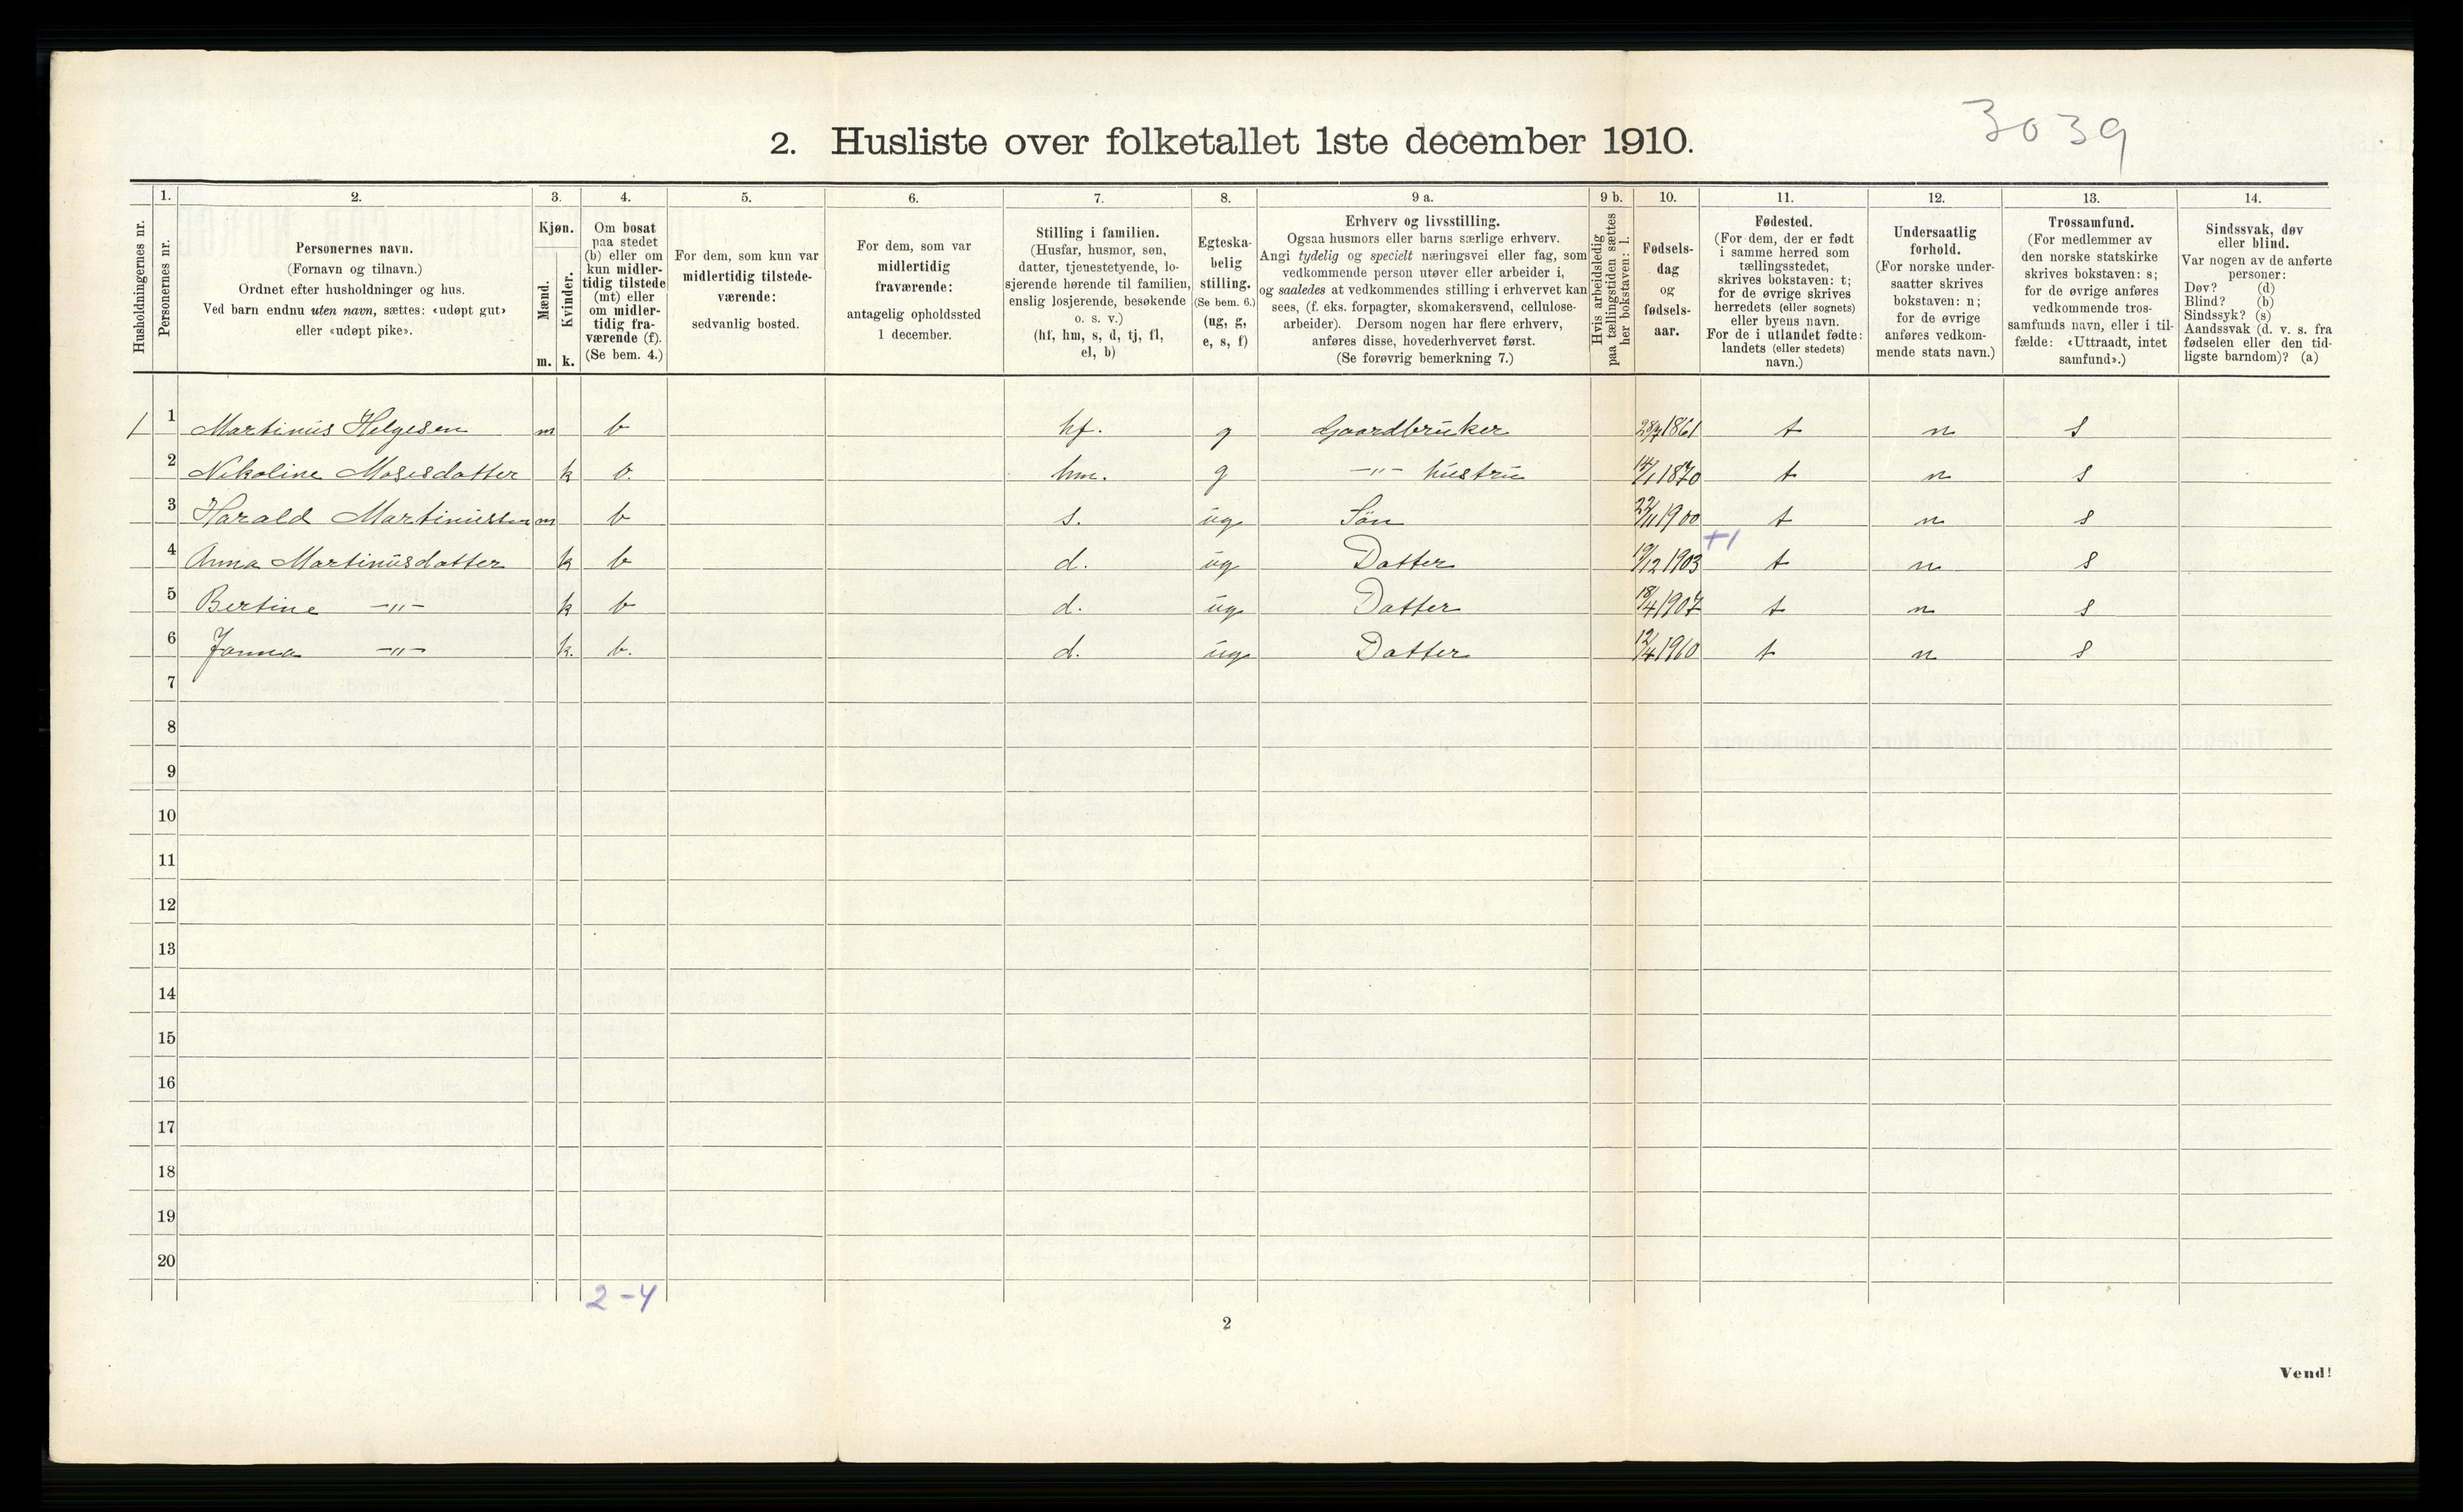 3039
2. Husliste over folketallet 1ste december 1910.
Husholdningernes nr.
1.
Personernes nr.
2.
Personernes navn.
(Fornavn og tilnavn.)
Ordnet efter husholdninger og hus.
Ved barn endnu uten navn, sættes: «udøpt gut»
eller «udøpt pike».
3.
Kjøn.
Mænd.
Kvinder.
m. k.
4.
Om bosat
paa stedet
(b) eller om
kun midler-
tidig tilstede
(mt) eller
om midler-
tidig fra-
værende (f).
(Se bem. 4.)
5.
For dem, som kun var
midlertidig tilstede-
værende:
sedvanlig bosted.
6.
For dem, som var
midlertidig
fraværende:
antagelig opholdssted
1 december.
7.
Stilling i familien.
(Husfar, husmor, søn,
datter, tjenestetyende, lo-
sjerende hørende til familien,
enslig losjerende, besøkende
o. s. v.)
(hf, hm, s, d, tj, fl,
el, b)
8.
Egteska-
belig
stilling.
(Se bem. 6.)
(ug, g,
e, s, f)
9 a.
Erhverv og livsstilling.
Ogsaa husmors eller barns særlige erhverv.
Angi tydelig og specielt næringsvei eller fag, som
vedkommende person utøver eller arbeider i,
og saaledes at vedkommendes stilling i erhvervet kan
sees, (f. eks. forpagter, skomakersvend, cellulose-
arbeider). Dersom nogen har flere erhverv,
anføres disse, hovederhvervet først.
(Se forøvrig bemerkning 7.)
9 b.
Hvis arbeidsledig
paa tællingstiden sættes
her bokstaven: l.
10.
Fødsels-
dag
og
fødsels-
aar.
11.
Fødested.
(For dem, der er født
i samme herred som
tællingsstedet,
skrives bokstaven: t;
for de øvrige skrives
herredets (eller sognets)
eller byens navn.
For de i utlandet fødte:
landets (eller stedets)
navn.)
12.
Undersaatlig
forhold.
(For norske under-
saatter skrives
bokstaven: n;
for de øvrige
anføres vedkom-
mende stats navn.)
13.
Trossamfund.
(For medlemmer av
den norske statskirke
skrives bokstaven: s;
for de øvrige anføres
vedkommende tros-
samfunds navn, eller i til-
fælde: «Uttraadt, intet
samfund».)
14.
Sindssvak, døv
eller blind.
Var nogen av de anførte
personer:
Døv? (d)
Blind? (b)
Sindssyk? (s)
Aandssvak (d. v. s. fra
fødselen eller den tid-
ligste barndom)? (a)
1 1 Martinus Helgesen m b hf. g Gaardbruker 1861 t n s
2 Nikoline Mosesdatter k b. hm. g —"— hustru 14/1 1870 t n s
3 Harald Martinussen m b s. ug Søn 22/11 1900 t n s
+1
4 Anna Martinusdatter k b d. ug Datter 19/12 1903 t n s
5 Bertine —"— k b d. ug Datter 18/4 1907 t n s
6 Janna —"— k. b. d. ug Datter 12/4 1910 t n s
7
8
9
10
11
12
13
14
15
16
17
18
19
20
2-4
2
Vend!